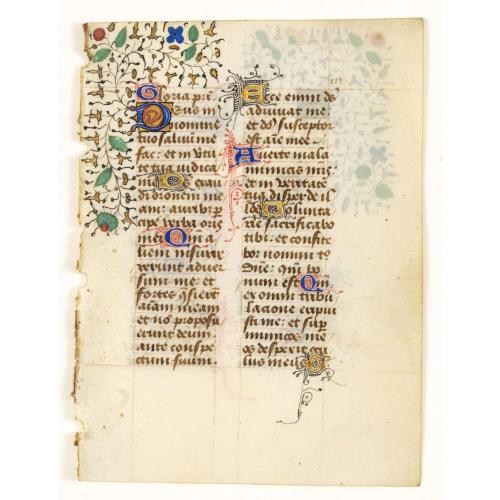 Gloria pri
Deus in
nomine
tuo saluum me
fac: et in vtu
te tua iudica
me Deus exau
di orōnem me
am: aurib; p
cipe verba oris
mei Qm̄ a
lieni insurre
xerunt aduer
sum me: et
fortes q̄sierūt
aīam meam
et nō proposu
erunt deum
ante conspe
ctum suum
Ecce enim ds̄
adiuuat me
et dn̄s susceptor
est aīe mee
Auerte mala
inimicis mīs
et in veritate
tua disperde il
los Volunta
rie sacrificabo
tibi: et confite
bor nomini tuo
Dn̄e: qm̄ bo
num est Qm̄
ex omni tribu
lacione eripui
sti me: et sup̄
inimicos me
os despexit ocu
lus meus